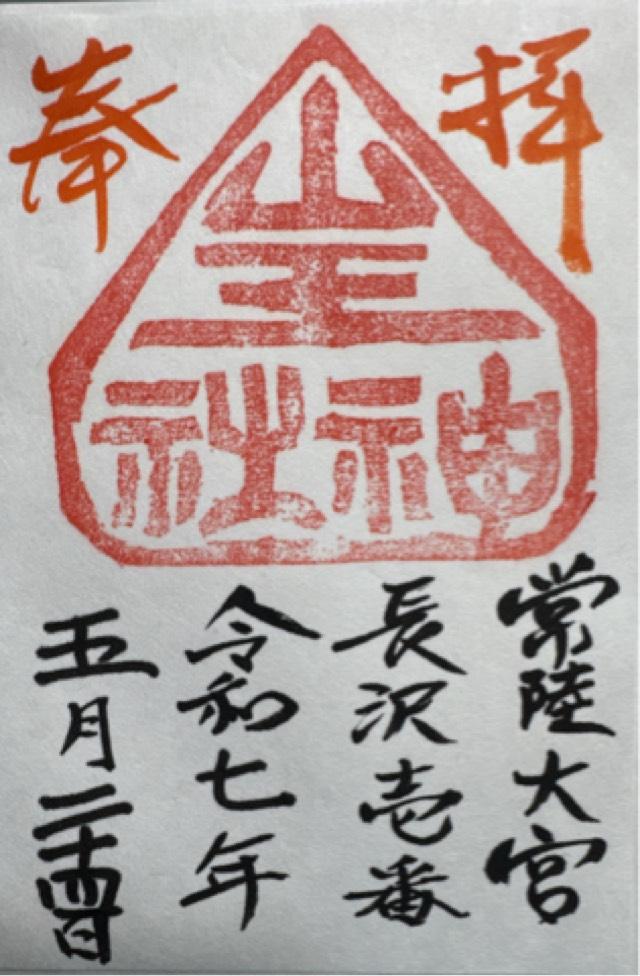 奉拝
山王
神社
常陸大宮
長沢壱番
令和七年
五月二十四日